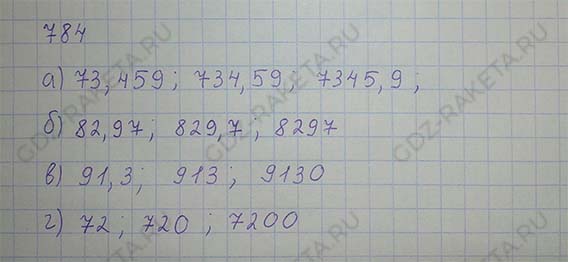 784
а) 73,459; 734,59; 7345,9;
б) 82,97; 829,7; 8297
в) 91,3; 913; 9130
г) 72; 720; 7200
GDZ-RAKETA.RU
GDZ-RAKETA.RU
GDZ-RAKETA.RU
GDZ-RAKETA.RU